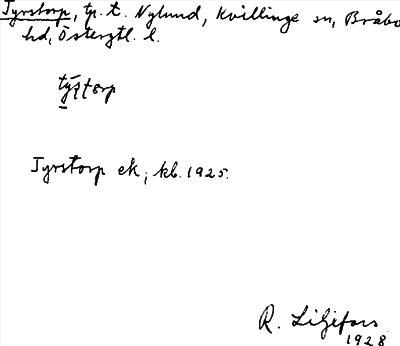 Tyrstorp, tp. t. Nylund, Kvillinge sn, Bråbo
hd, Östergtl. l.
Tyrstorp ek, kb. 1925.
R. Liljefors
1928